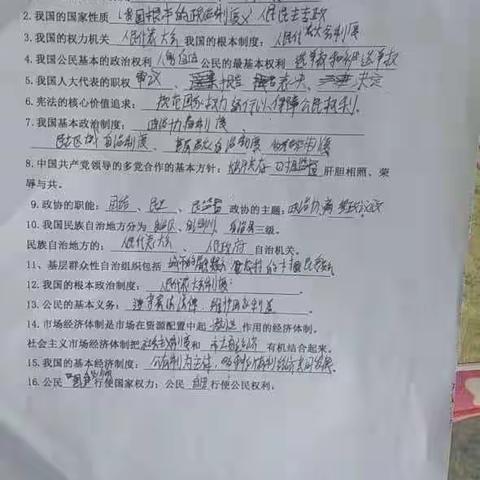 2.我国的国家性质 人民民主专政
3.我国的权力机关 人民代表大会 我国的根本制度: 人民代表大会制度
4.我国公民基本的政治权利 公民的最基本权利 选举权和被选举权
5.我国人大代表的职权 审议、 表决、 决定
6.宪法的核心价值追求: 规范国家权力运行以保障公民权利。
7.我国基本政治制度: 政治协商制度
民族区域自治制度、 基层群众自治制度
8.中国共产党领导的多党合作的基本方针: 长期共存 互相监督 肝胆相照、荣
辱与共。
9.政协的职能: 、民主、民主监督 政协的主题: 政治协商 参政议政
10.我国民族自治地方分为 自治区、自治州、自治县三级。
民族自治地方的: 人民代表大会、 人民政府 自治机关。
11、基层群众性自治组织包括
12.我国的根本政治制度: 人民代表大会制度 .
13.公民的基本义务: 遵守宪法法律,维护国家利益 .
14.市场经济体制是市场在资源配置中起 作用的经济体制。
社会主义市场经济体制把 和 有机结合起来。
15.我国的基本经济制度: 公有制为主体,多种所有制经济共同发展。
16.公民 行使国家权力;公民 行使公民权利。